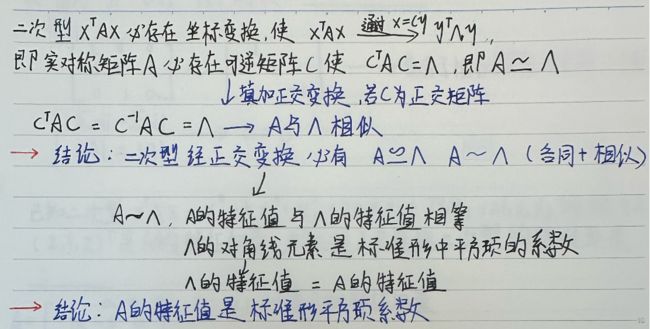 二次型 xᵀAx 必存在坐标变换,使 xᵀAx 通过 x=Cy → yᵀΛy,
即实对称矩阵A必存在可逆矩阵C使 CᵀAC=Λ,即A≃Λ
↓填加正交变换,若C为正交矩阵
CᵀAC = C⁻¹AC = Λ → A与Λ相似
→ 结论:二次型经正交变换必有 A≃Λ A~Λ (合同+相似)
↓
A~Λ,A的特征值与Λ的特征值相等
Λ的对角线元素是标准形中平方项的系数
Λ的特征值 = A的特征值
→ 结论:A的特征值是标准形平方项系数